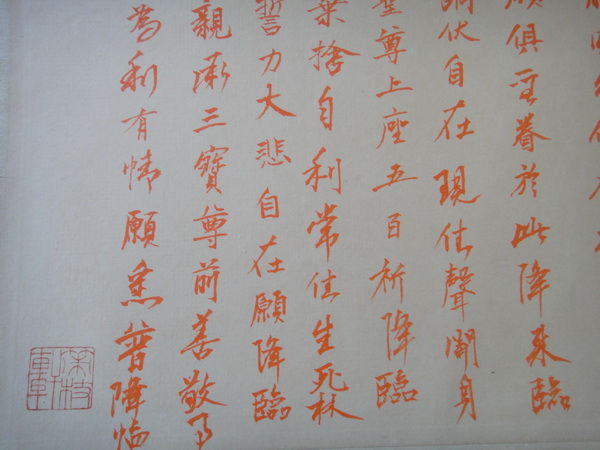 俱至眷於此降來臨
伏自在現住聲聞身
聖尊上座五百祈降臨
棄捨自利常住生死林
誓力大悲自在願降臨
親承三寶尊前善敬事
為利有情願悉普降